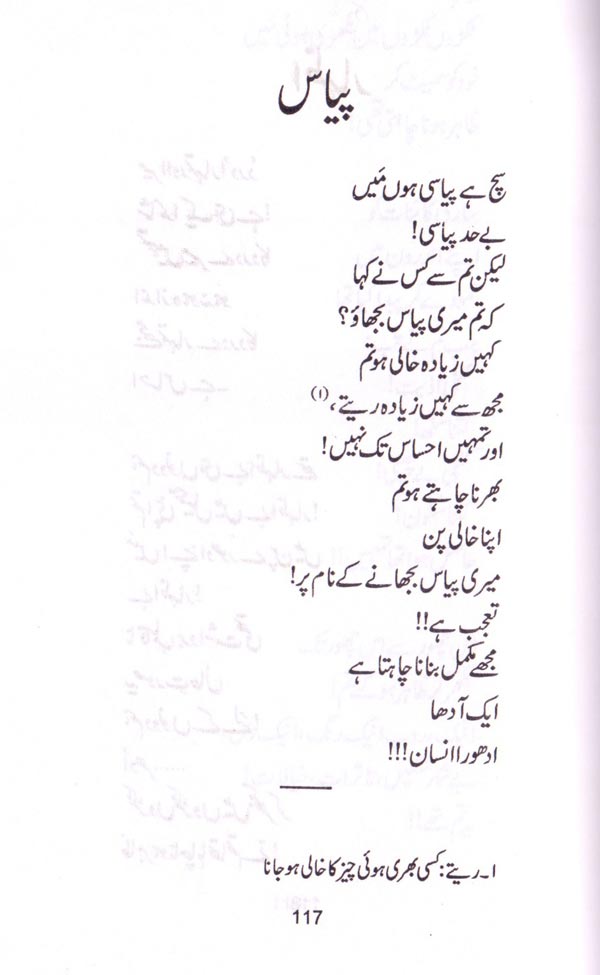 پیاس
سچ ہے پیاسی ہوں مَیں
بے حد پیاسی!
لیکن تم سے کس نے کہا
کہ تم میری پیاس بجھاؤ؟
کہیں زیادہ خالی ہو تم
مجھ سے کہیں زیادہ ریتے،(۱)
اور تمہیں احساس تک نہیں!
بھرنا چاہتے ہو تم
اپنا خالی پن
میری پیاس بجھانے کے نام پر!
تعجب ہے!!
مجھے مکمل بنانا چاہتا ہے
ایک آدھا
ادھورا انسان!!!
۱۔ریتے: کسی بھری ہوئی چیز کا خالی ہو جانا
117